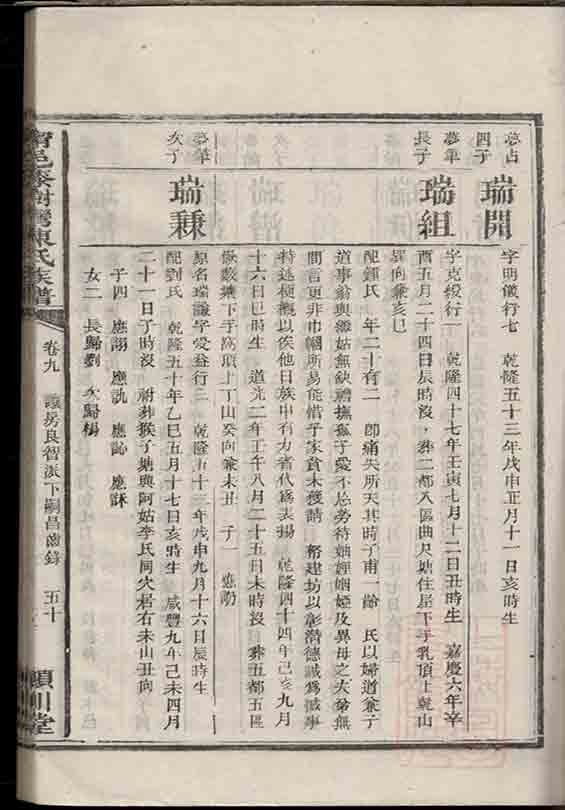 夢占
四子
瑞開
字明儀行七 乾隆五十三年戊申正月十一日亥時生
夢華
長子
瑞組
字克綬行一 乾隆四十七年壬寅七月十二日丑時生 嘉慶六年辛
酉五月二十四日辰時沒 葬二都八區曲尺塘住屋下手乳頂上乾山
巽向兼亥巳
配鍾氏 年二十有二 卽痛失所天其時子甫一齡 氏以婦道兼子
道事翁與孀姑無缺禮撫孤子愛不忘勞待妯娌姻婭及異母之夫弟無
間言更非巾幗所易能惜子家貧未獲請 帑建坊以彰潛德誠為憾事
特述梗概以俟他日族中有力者代為表揚 乾隆四十四年己亥九月
十六日巳時生 道光二年壬午八月二十五日未時沒 葬五都五區
塘下手窩頂上丁山癸向兼未丑 子一 應
夢華
次子
瑞秉
原名瑞謙字受益行三 乾隆五十三年戊申九月十六日辰時生
配劉氏 乾隆五十年乙巳五月十七日亥時生 咸豐九年己未四月
二十一日子時沒 祔葬猴子塘與阿姑李氏同穴居右未山丑向
子四 應詡 應訓 應訫 應訸
女二 長歸劉 次歸楊
陳氏族譜
卷九
房良智派下嗣昌齒錄
五十
潁川堂